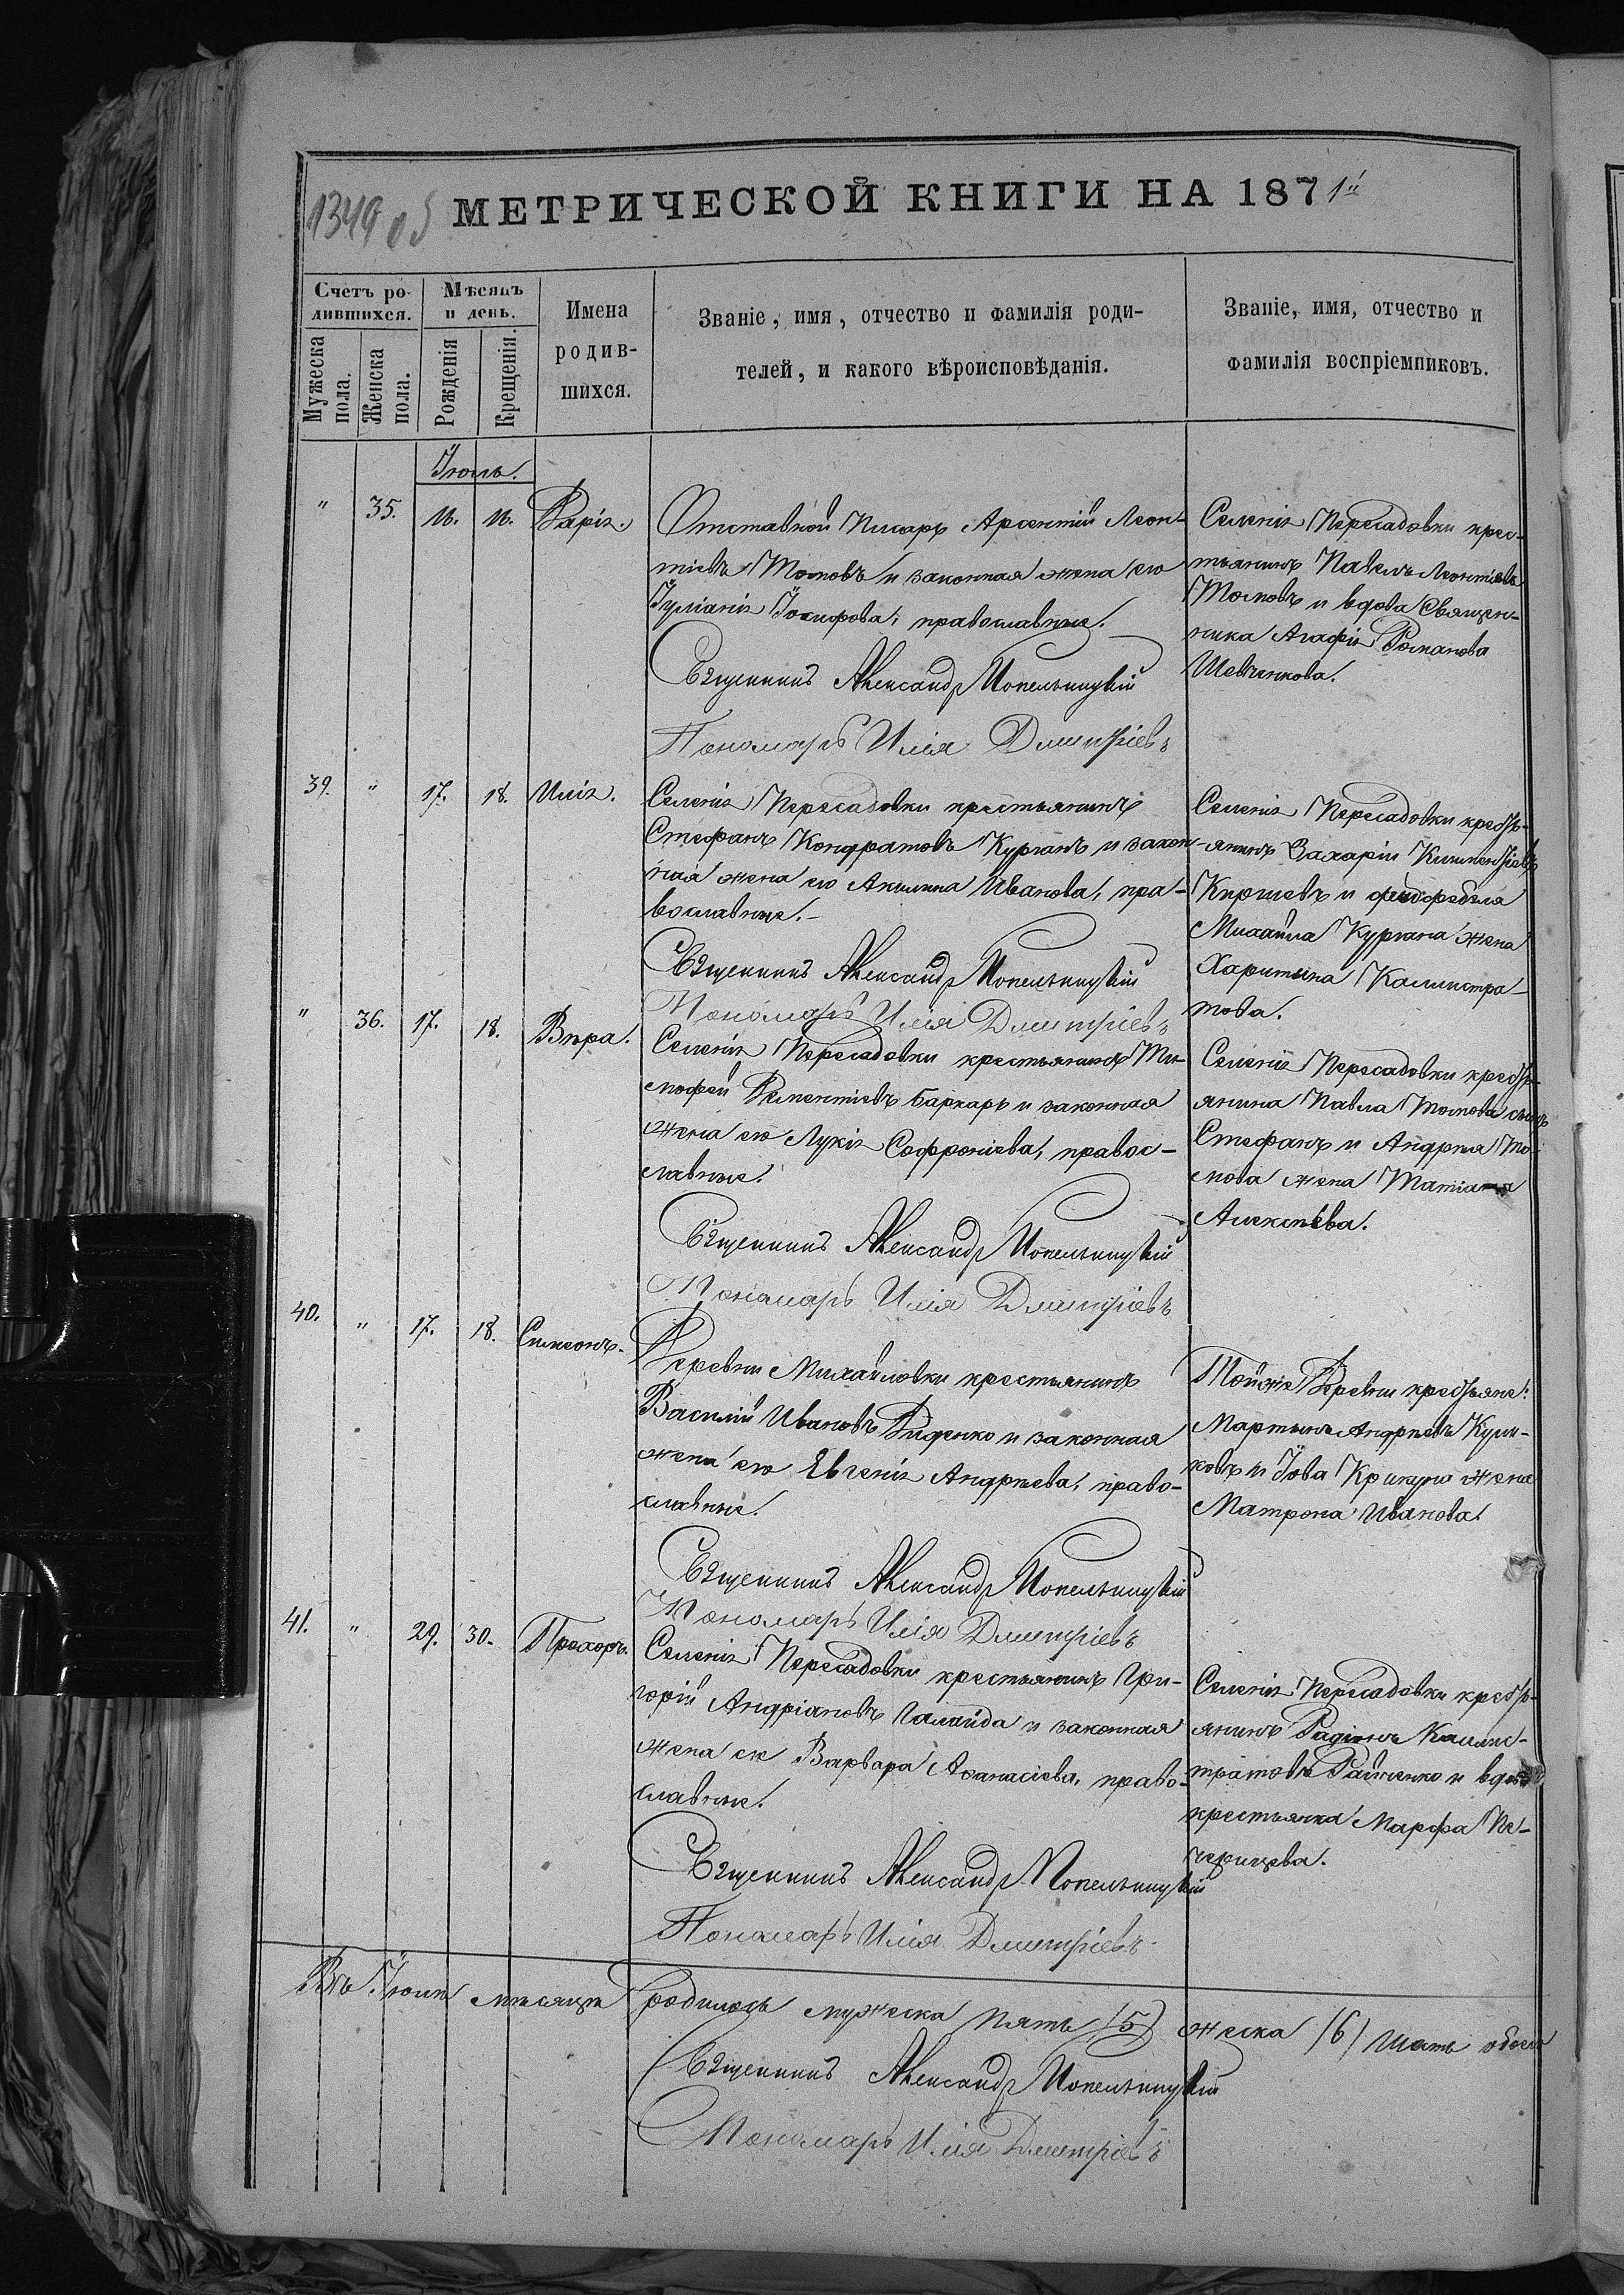 1349 об
МЕТРИЧЕСКОЙ КНИГИ НА 1871й
Счетъ ро-
дившихся.
Мѣсяцъ
и день.
Имена
родив-
шихся.
Званіе, имя, отчество и фамилія роди-
телей, и какого вѣроисповѣданія.
Званіе, имя, отчество и
фамилія воспріемниковъ.
Мужеска
пола.
Женска
пола.
Рожденія
Крещенія.
Іюль.
" 35. 16. 16. Марія.
Отставной Писарь Арсентій Леон-
тіевъ Томовъ и законная жена его
Іуліанія Іосифова, православные.
Священникъ Александр Попельницкій
Пономарь Илія Дмитріевъ
Селенія Пересадовки крес-
тьянинъ Павелъ Леонтіевъ
Томовъ и вдова Священ-
ника Агафія Романова
Шевченкова.
39. " 17. 18. Илія.
Селенія Пересадовки крестьянинъ
Стефанъ Кондратовъ Курганъ и закон-
ная жена его Акилина Иванова, пра-
вославные.
Священникъ Александр Попельницкій
Пономарь Илія Дмитріевъ
Селенія Пересадовки кресть-
янинъ Захарій
и фельдфебеля
Михаила Кургана жена
Харитина Каллистра-
това.
" 36. 17. 18. Вѣра.
Селенія Пересадовки крестьянинъ Ти-
мофей Дементіевъ Баркарь и законная
жена его Лукія Софроніева, правос-
лавные.
Священникъ Александр Попельницкій
Пономарь Илія Дмитріевъ
Селенія Пересадовки кресть-
янина Павла Томова сынъ
Стефанъ и Андрея То-
мова жена Татіана
Алексѣева.
40. " 17. 18. Симеонъ.
Деревни Михайловки крестьянинъ
Василій Ивановъ Диденко и законная
жена его Евгенія Андреева, право-
славные.
Священникъ Александр Попельницкій
Пономарь Илія Дмитріевъ
Тойже Деревни крестьяне:
Мартынъ Андреевъ Кули-
ковъ и Іова Крикуна жена
Матрона Иванова.
41. " 29. 30. Прохоръ.
Селенія Пересадовки крестьянинъ Гри-
горій Андріановъ Галайда и законная
жена его Варвара Афанасіева, право-
славные.
Священникъ Александр Попельницкій
Пономарь Илія Дмитріевъ
Селенія Пересадовки кресть-
янинъ Радіонъ Каллис-
тратовъ Райченко и вдова
крестьянка Марфа Пе-
черицева.
Въ Іюлѣ мѣсяцѣ родилось мужеска пять (5) женска (6) шесть обоего
Священникъ Александр Попельницкій
Пономарь Илія Дмитріевъ